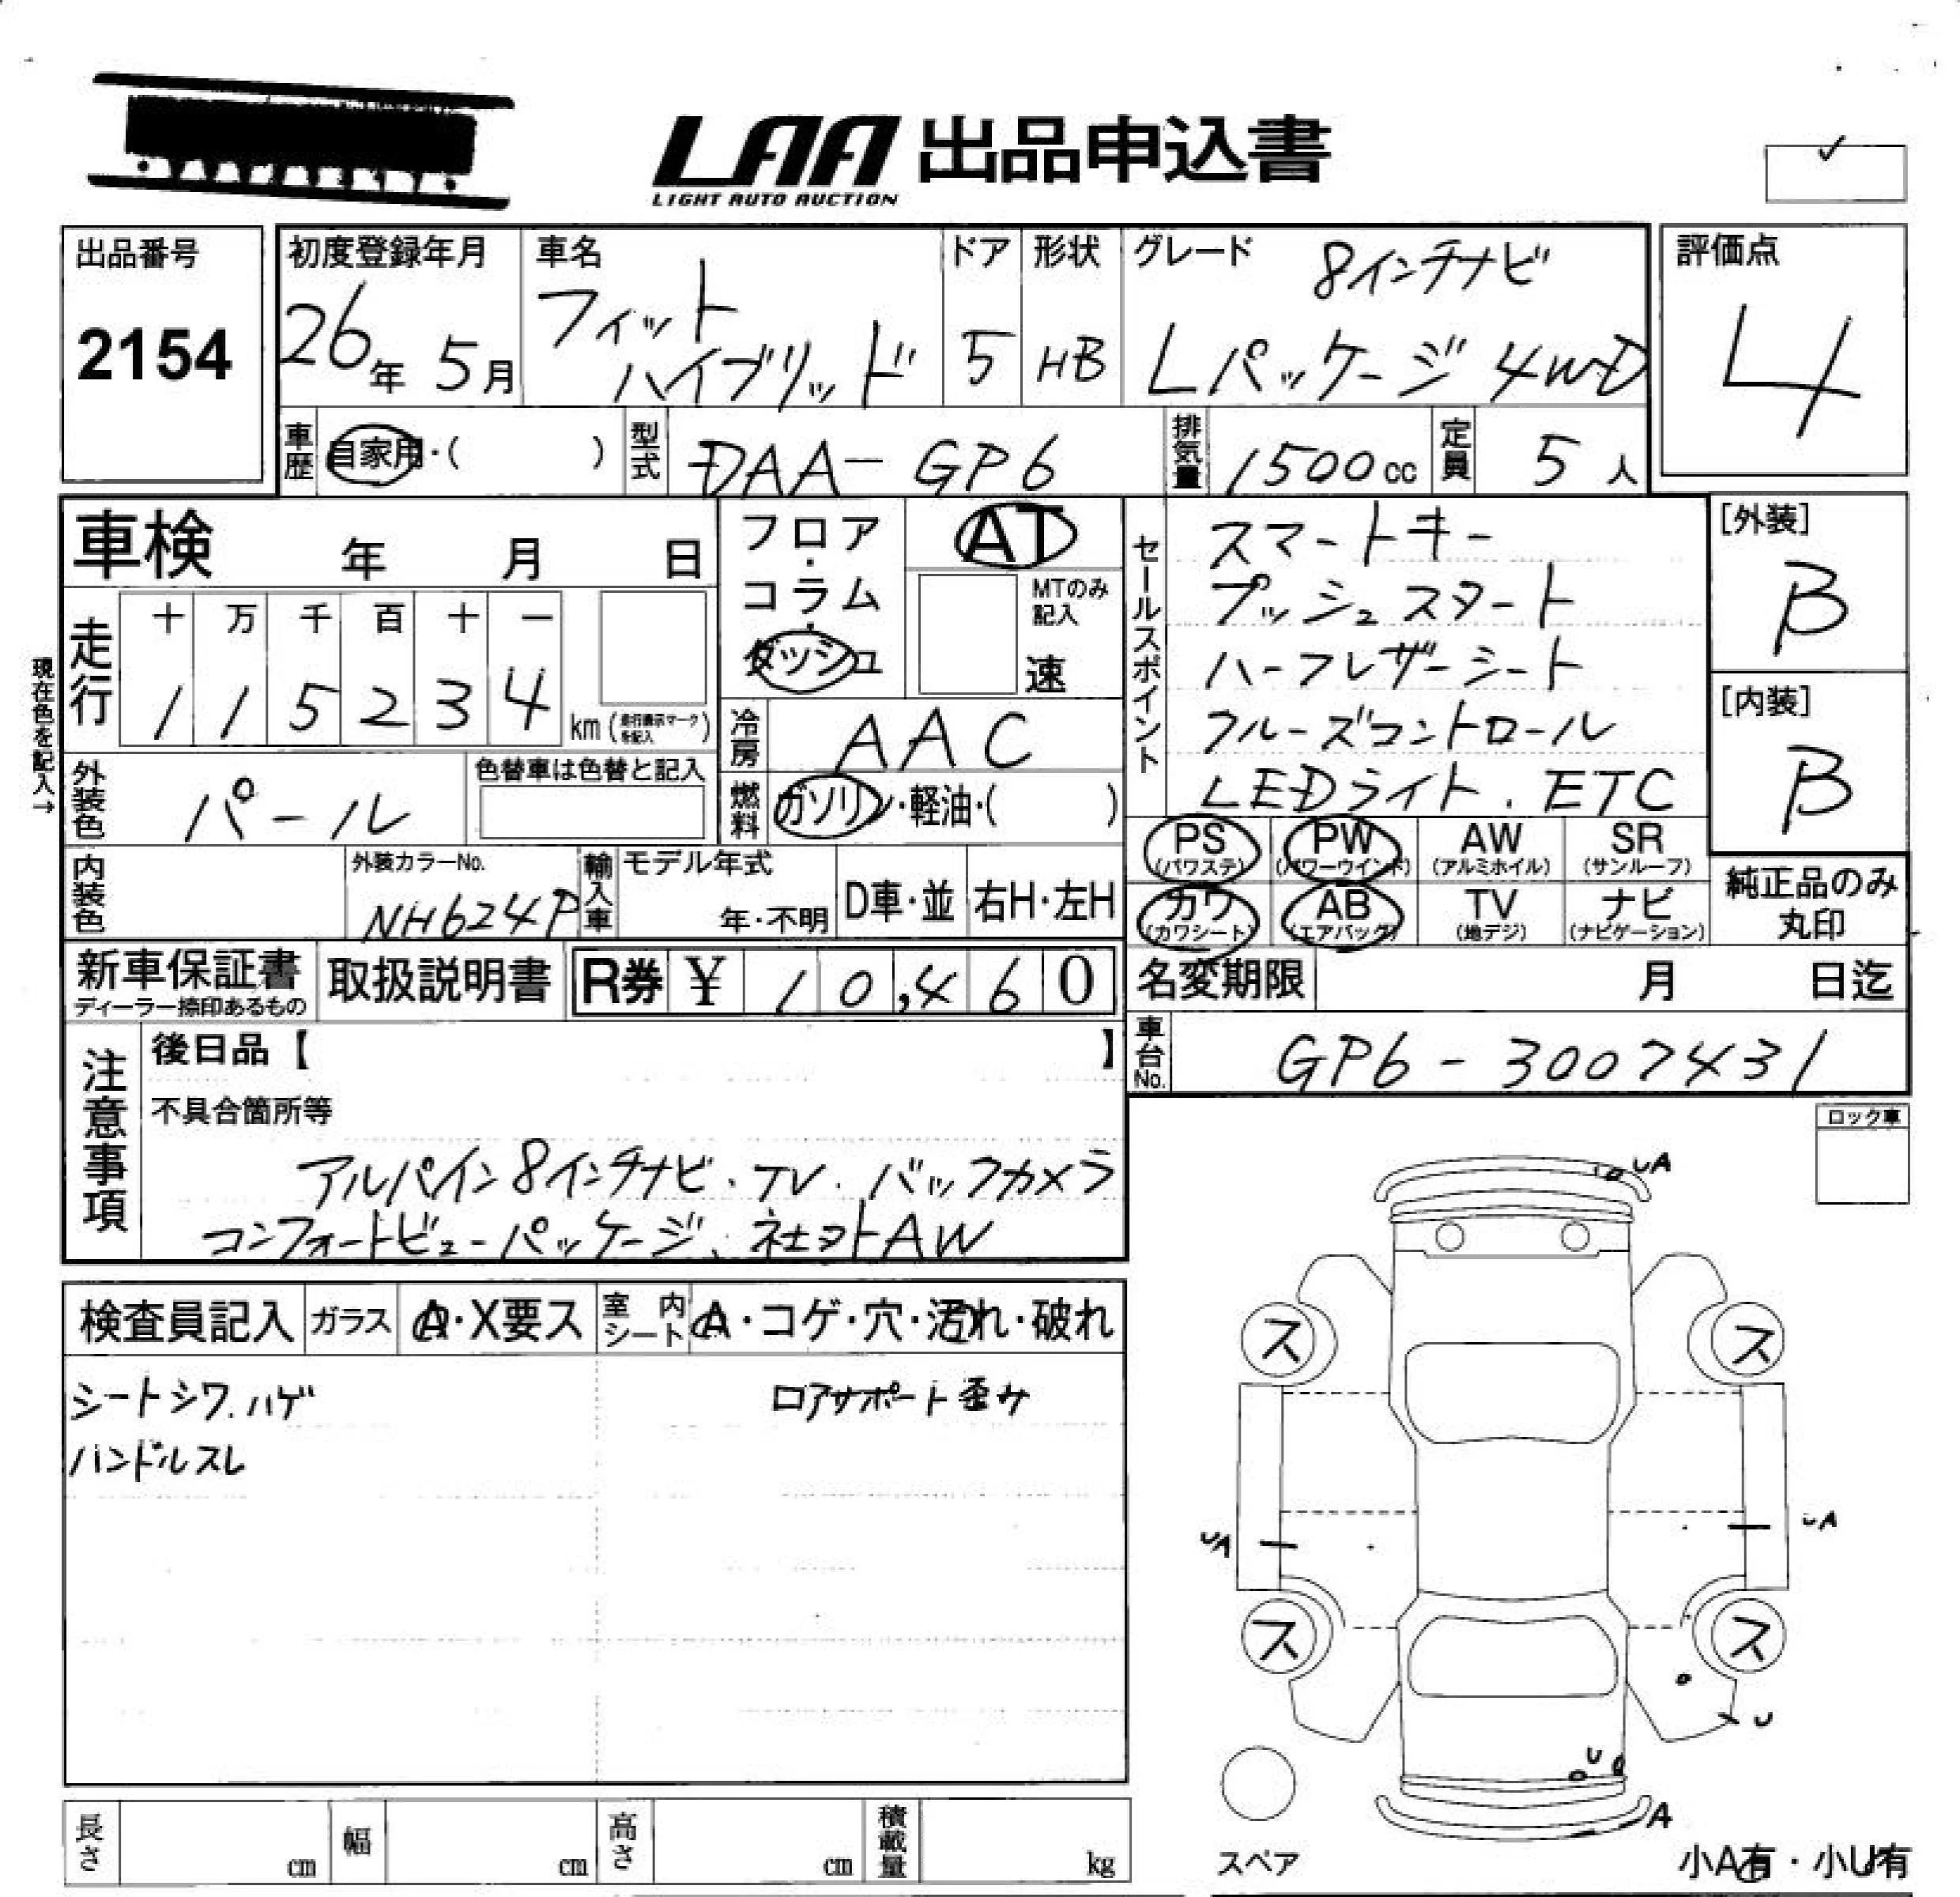 LAA 出品申込書
LIGHT AUTO AUCTION
出品番号
2154
初度登録年月
26年 5月
車名
フィット
ハイブリッド
ドア
5
形状
HB
グレード
8インチナビ
Lパッケージ 4WD
評価点
4
車歴
自家用・( )
型式
DAA-GP6
排気量
1500cc
定員
5人
車検 年 月 日
現在色を記入→
走行
十 万 千 百 十 一
1 1 5 2 3 4
km(走行表示マークを記入)
フロア・
コラム・
ダッシュ
AT
MTのみ
記入
速
冷房
AAC
燃料
ガソリン・軽油・( )
外装色
パール
色替車は色替と記入
内装色
外装カラーNo.
NH624P
輸入車
モデル年式
年・不明
D車・並
右H・左H
セールスポイント
スマートキー
プッシュスタート
ハーフレザーシート
クルーズコントロール
LEDライト、ETC
[外装]
B
[内装]
B
PS
(パワステ)
PW
(パワーウインド)
AW
(アルミホイル)
SR
(サンルーフ)
カワ
(カワシート)
AB
(エアバッグ)
TV
(地デジ)
ナビ
(ナビゲーション)
純正品のみ
丸印
新車保証書
ディーラー捺印あるもの
取扱説明書
R券 ¥ 10,460
名変期限 月 日迄
車台No.
GP6-3007431
注意事項
後日品【 】
不具合箇所等
アルパイン8インチナビ、TV、バックカメラ
コンフォートビューパッケージ、社外AW
ロック車
検査員記入
ガラス
A・X要ス
室内
シート
A・コゲ・穴・汚れ・破れ
シートシワ、ハゲ
ハンドルスレ
ロアサポート歪み
UA
ス
ス
UA
UA
ス
ス
U
U
A
スペア
小A有・小U有
長さ
cm
幅
cm
高さ
cm
積載量
kg